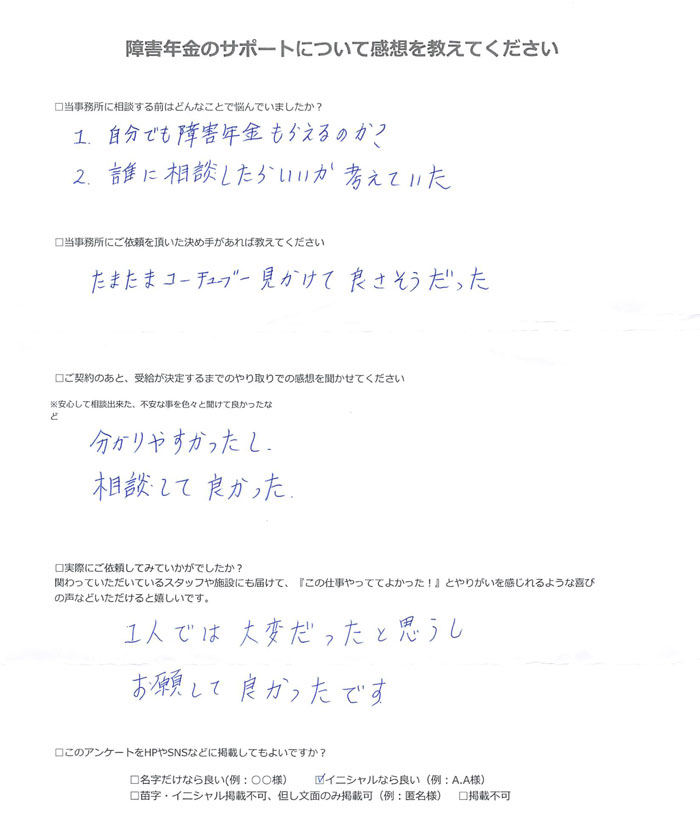 障害年金のサポートについて感想を教えてください
□当事務所に相談する前はどんなことで悩んでいましたか？
1. 自分でも障害年金もらえるのか？
2. 誰に相談したらいいか 考えていた
□当事務所にご依頼を頂いた決め手があれば教えてください
たまたまユーチューブー見かけて 良さそうだった
□ご契約のあと、受給が決定するまでのやり取りでの感想を聞かせてください
※安心して相談出来た、不安な事を色々と聞けて良かったな
ど
分かりやすかったし、
相談して良かった.
□実際にご依頼してみていかがでしたか？
関わっていただいているスタッフや施設にも届けて、『この仕事やっててよかった！』とやりがいを感じれるような喜び
の声などいただけると嬉しいです。
1人では 大変だったと思うし
お願して 良かったです
□このアンケートをHPやSNSなどに掲載してもよいですか？
□名字だけなら良い(例：〇〇様） ☑イニシャルなら良い（例：A.A様）
□苗字・イニシャル掲載不可、但し文面のみ掲載可（例：匿名様） □掲載不可